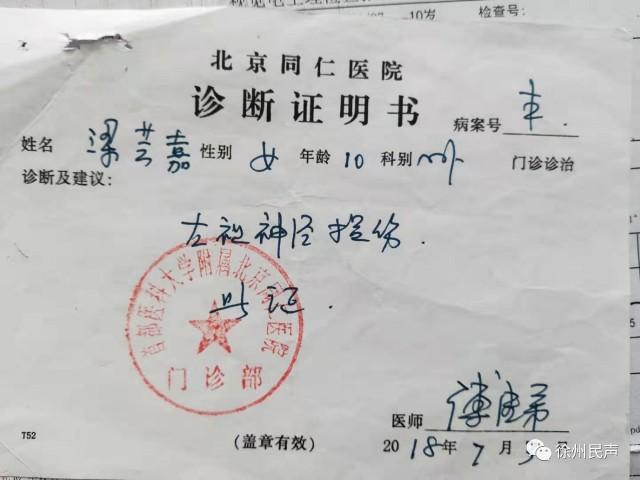 10岁 检查号:
北京同仁医院
诊断证明书
病案号
姓名 梁芸嘉 性别 女 年龄 10 科别 眼外 门诊诊治
诊断及建议:
左视神经损伤.
此证.
首都医科大学附属北京同仁医院
门诊部
医师
752 (盖章有效) 2018年7月 日
徐州民声